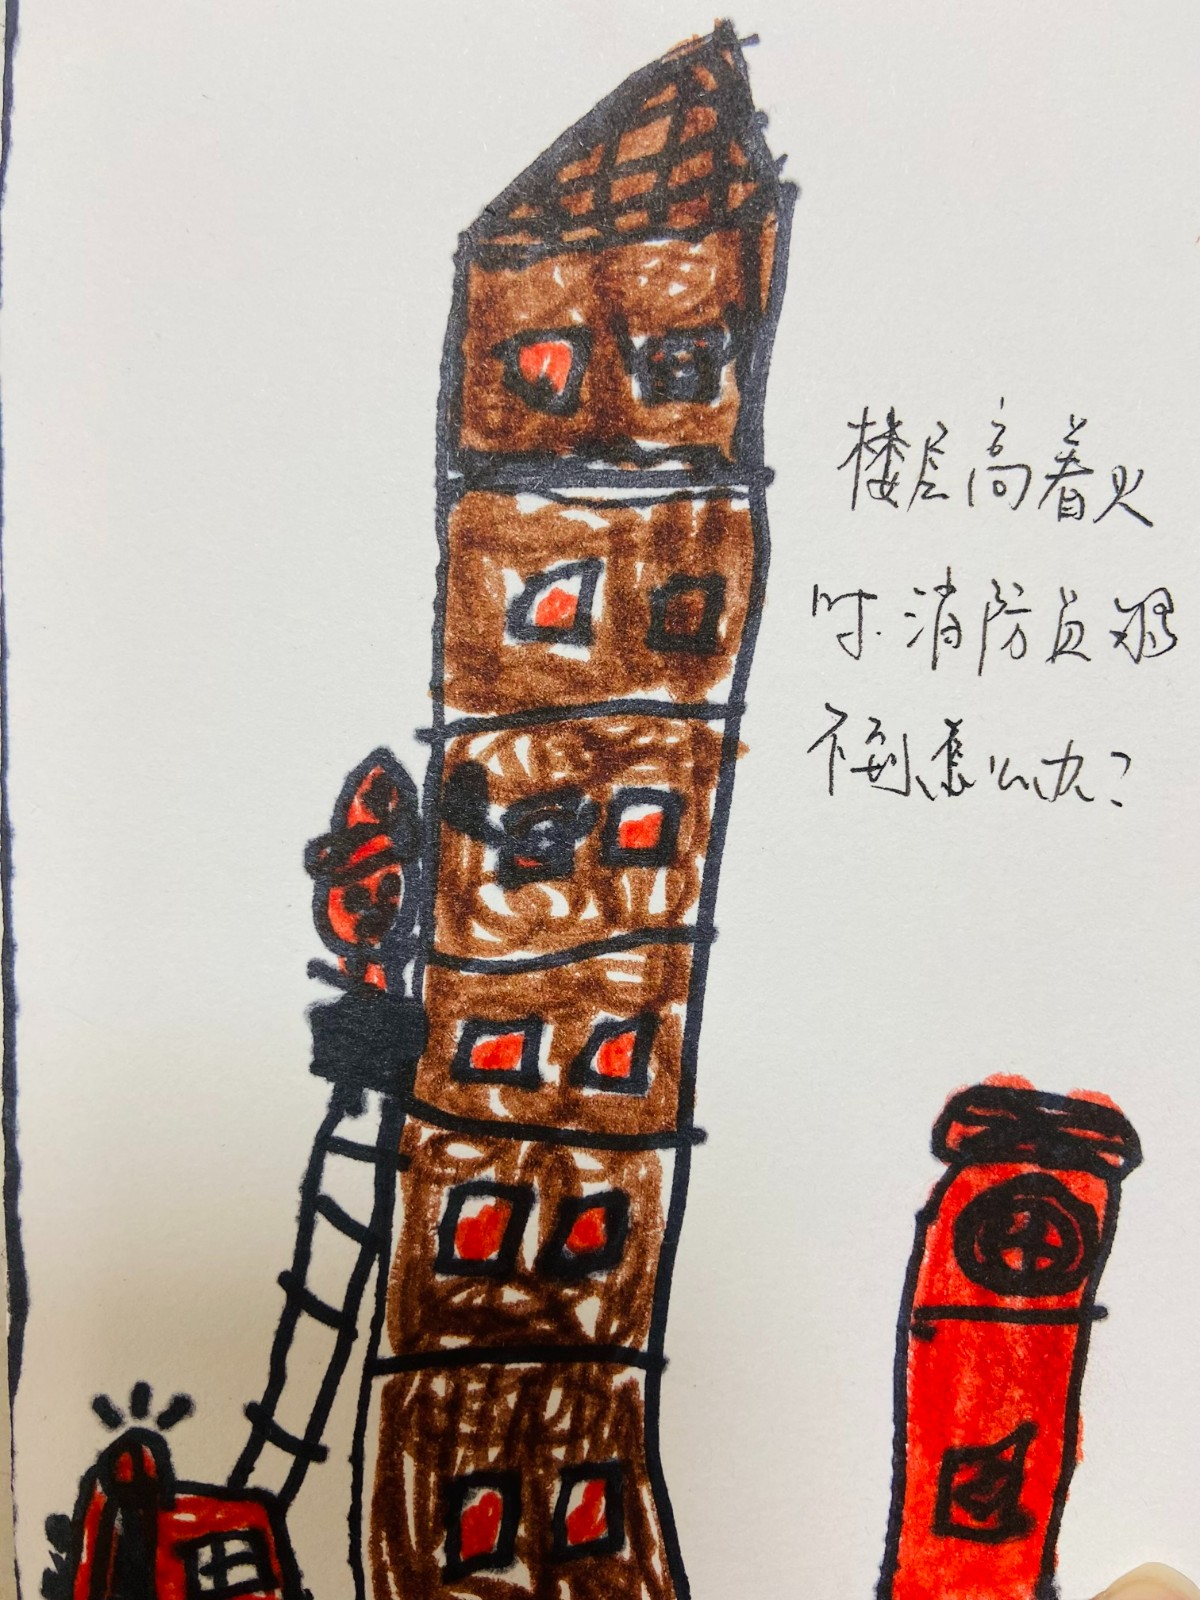 楼层高着火
时.消防员爬
不到怎么办?